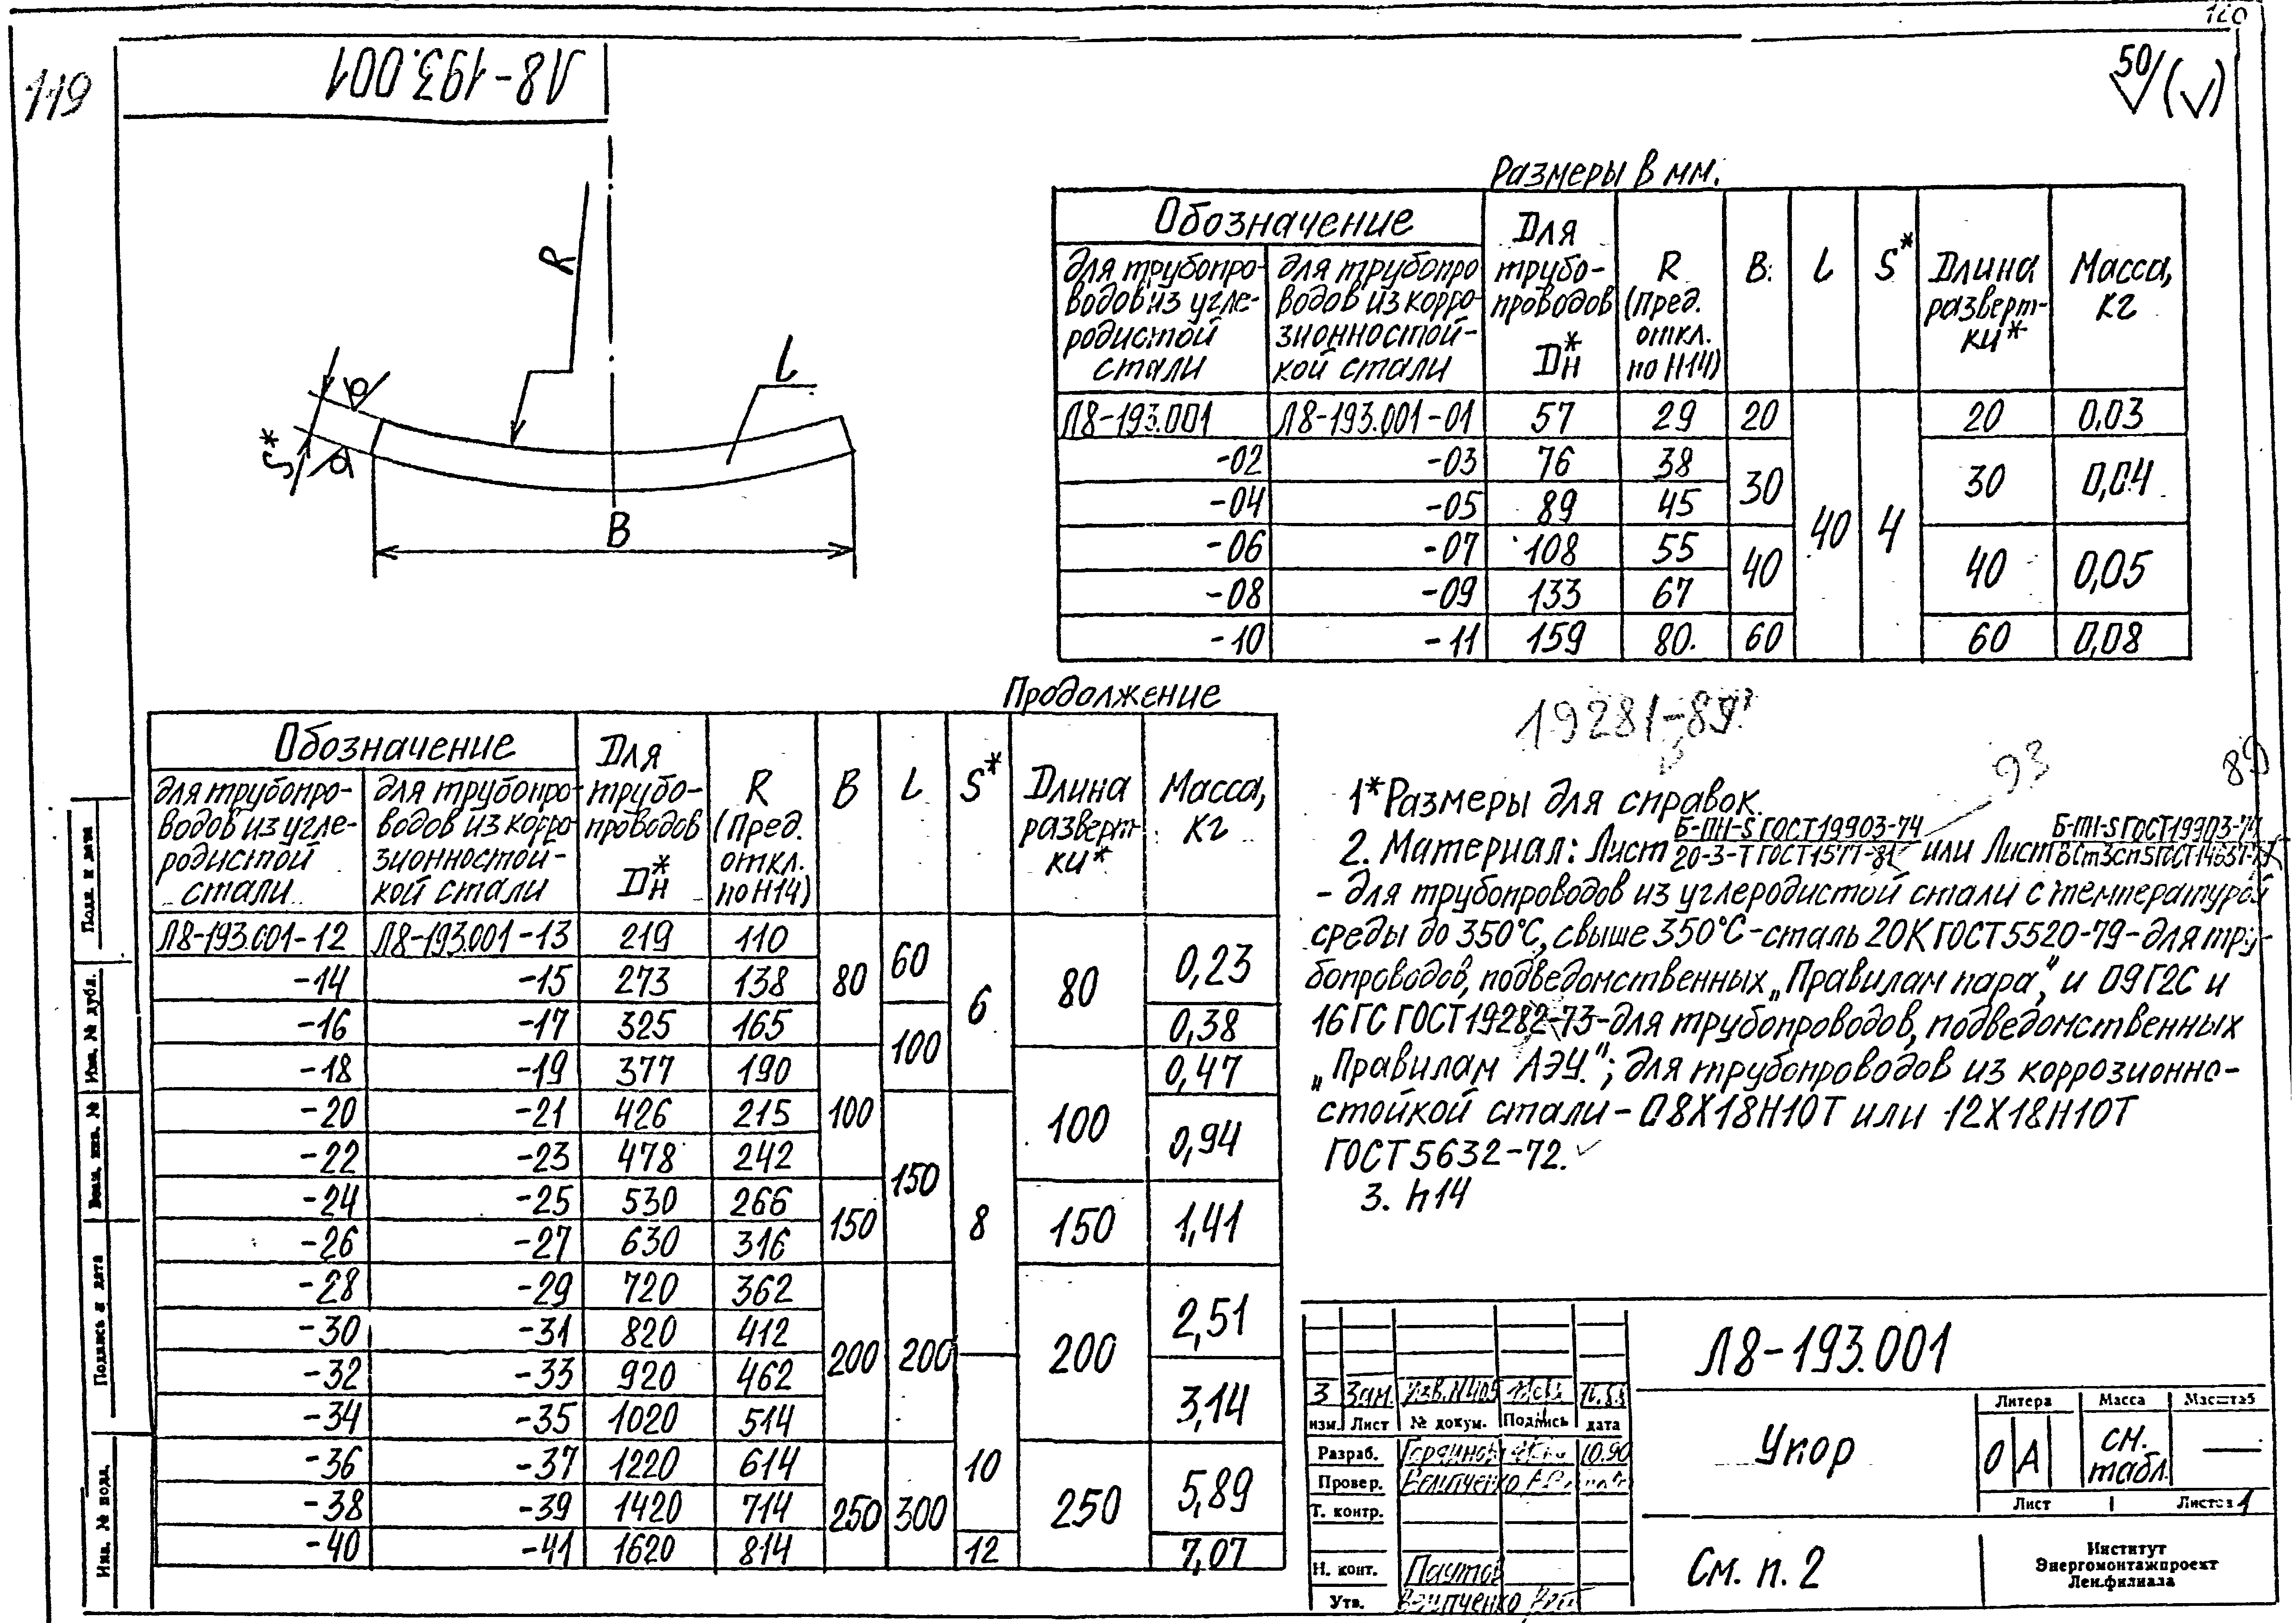 120
119
Л8-193.001
50/(√)
R
L
S*
B
Размеры в мм.
Обозначение
для трубопроводов из углеродистой стали
для трубопроводов из коррозионностойкой стали
Для трубопроводов Dн*
R (пред. откл. по H14)
B
L
S*
Длина развертки*
Масса, кг
Л8-193.001 Л8-193.001-01 57 29 20 40 4 20 0,03
-02 -03 76 38 30 30 0,04
-04 -05 89 45
-06 -07 108 55 40 40 0,05
-08 -09 133 67
-10 -11 159 80 60 60 0,08
Продолжение
Обозначение
для трубопроводов из углеродистой стали
для трубопроводов из коррозионностойкой стали
Для трубопроводов Dн*
R (Пред. откл. по H14)
B
L
S*
Длина развертки*
Масса, кг
Л8-193.001-12 Л8-193.001-13 219 110 80 60 6 80 0,23
-14 -15 273 138
-16 -17 325 165 100 0,38
-18 -19 377 190 100 100 0,47
-20 -21 426 215 150 8 0,94
-22 -23 478 242
-24 -25 530 266 150 150 1,41
-26 -27 630 316
-28 -29 720 362 200 200 200 2,51
-30 -31 820 412
-32 -33 920 462 10 3,14
-34 -35 1020 514
-36 -37 1220 614 250 300 250 5,89
-38 -39 1420 714
-40 -41 1620 814 12 7,07
19281-89
93
89
1* Размеры для справок.
2. Материал: Лист Б-ПН-S ГОСТ19903-74 / 20-3-Т ГОСТ1577-81 или Лист Б-ПН-S ГОСТ19903-74 / ВСт3сп5 ГОСТ14637-
- для трубопроводов из углеродистой стали с температурой
среды до 350°С, свыше 350°С - сталь 20К ГОСТ5520-79 - для тру-
бопроводов, подведомственных „Правилам пара", и 09Г2С и
16ГС ГОСТ19282-73 - для трубопроводов, подведомственных
„Правилам АЭУ."; для трубопроводов из коррозионно-
стойкой стали - 08Х18Н10Т или 12Х18Н10Т
ГОСТ 5632-72.
3. h14
Подп. и дата
Инв. № дубл.
Взам. инв. №
Подпись и дата
Инв. № подл.
Л8-193.001
3 Зам.
изм. Лист № докум. Подпись дата
Разраб. 10.90
Провер.
Т. контр.
Н. конт. Паутов
Утв.
Упор
Литера Масса Масштаб
О А см. табл. —
Лист Листов 1
См. п. 2
Институт
Энергомонтажпроект
Лен.филиала